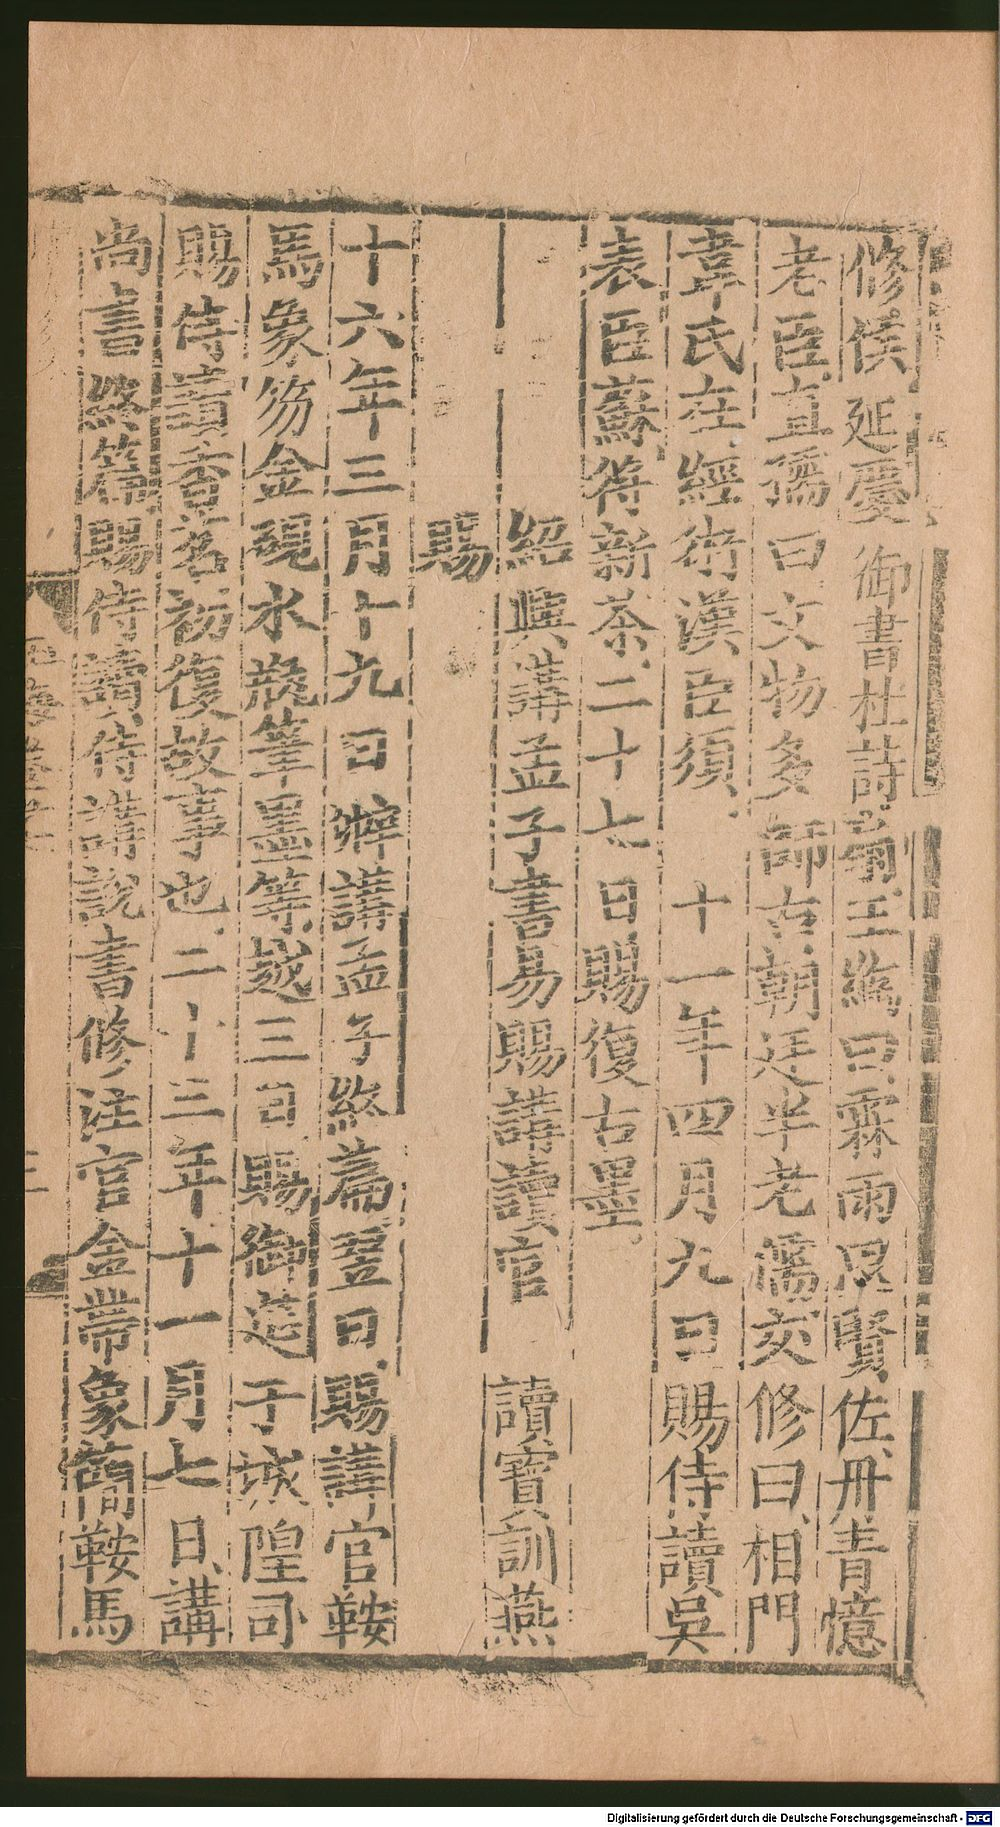 修侯延慶御書杜詩蜀王縡曰霖雨思賢佐丹青憶
老臣直儒曰文物多師古朝廷半老儒亥修曰相門
韋氏在經術漢臣須十一年四月九日賜侍讀吳
表臣蘇符新茶二十七日賜復古墨
紹興講孟子書易賜講讀官讀寶訓燕
賜
十六年三月十九日辭講孟子終篇翌日賜講官鞍
馬象笏金硯水瓶筆墨等越三日賜御筵于城隍司
賜侍讀香茗初復故事也二十三年十一月七日講
尚書終篇賜侍讀侍講說書修注官金帶象簡鞍馬
三
Digitalisierung gefördert durch die Deutsche Forschungsgemeinschaft - DFG